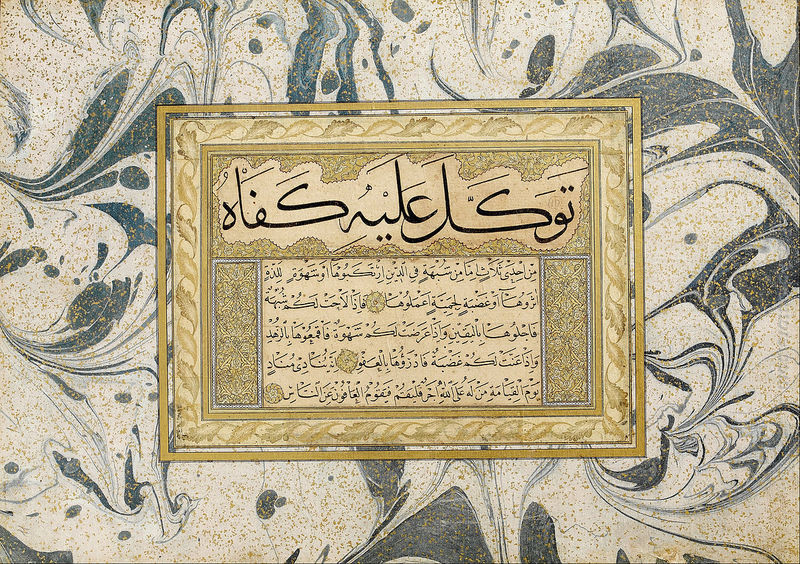 تَوَكَّلَ عَلَيْهِ كَفَاهُ
مِنْ اِحْدٰى ثَلَاثٍ اِمَّا مِنْ شُبْهَةٍ فِى الدِّينِ اِرْتَكَبُوهَا اَوْ شَهْوَةٍ لِلَّذَّةِ
اٰثَرُوهَا اَوْ غَضْبَةٍ لِحَمِيَّةٍ اَعْمَلُوهَا فَاِذَا لَاحَتْ لَكُمْ شُبْهَةٌ
فَاجْلُوهَا بِالْيَقِينِ وَاِذَا عَرَضَتْ لَكُمْ شَهْوَةٌ فَاقْمَعُوهَا بِالزُّهْدِ
وَاِذَا عَنَّتْ لَكُمْ غَضْبَةٌ فَادْرَؤُهَا بِالْعَفْوِ اِنَّهُ يُنَادِى مُنَادٍ
يَوْمَ الْقِيَامَةِ مَنْ لَهُ عَلَى اللّٰهِ اَجْرٌ فَلْيَقُمْ فَيَقُومُ الْعَافُونَ عَنِ النَّاسِ